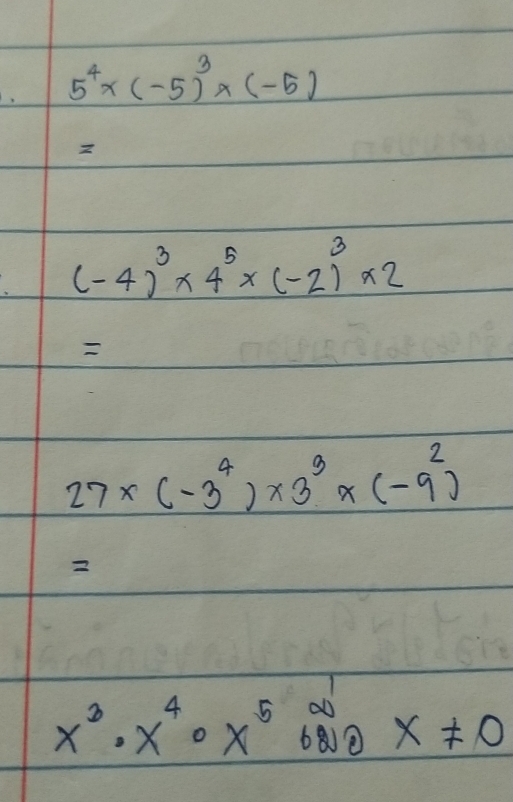 5⁴ × (-5)³ × (-5)
=
(-4)³ × 4⁵ × (-2)³ × 2
=
27 × (-3⁴) × 3³ × (-9²)
=
x³ • x⁴ • x⁵ เมื่อ x ≠ 0